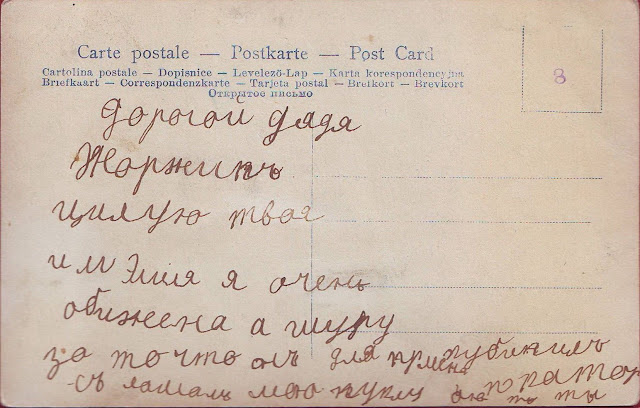 Carte postale — Postkarte — Post Card
Cartolina postale — Dopisnice — Levelező-Lap — Karta korespondencyjna
Briefkaart — Correspondenzkarte — Tarjeta postal — Brefkort — Brevkort
Открытое письмо
8
Дорогой дядя
Жоржикъ
цилую твоя
и м Эмия я очень
обижена а шуру
за то что онъ для
съ мою куклу ты